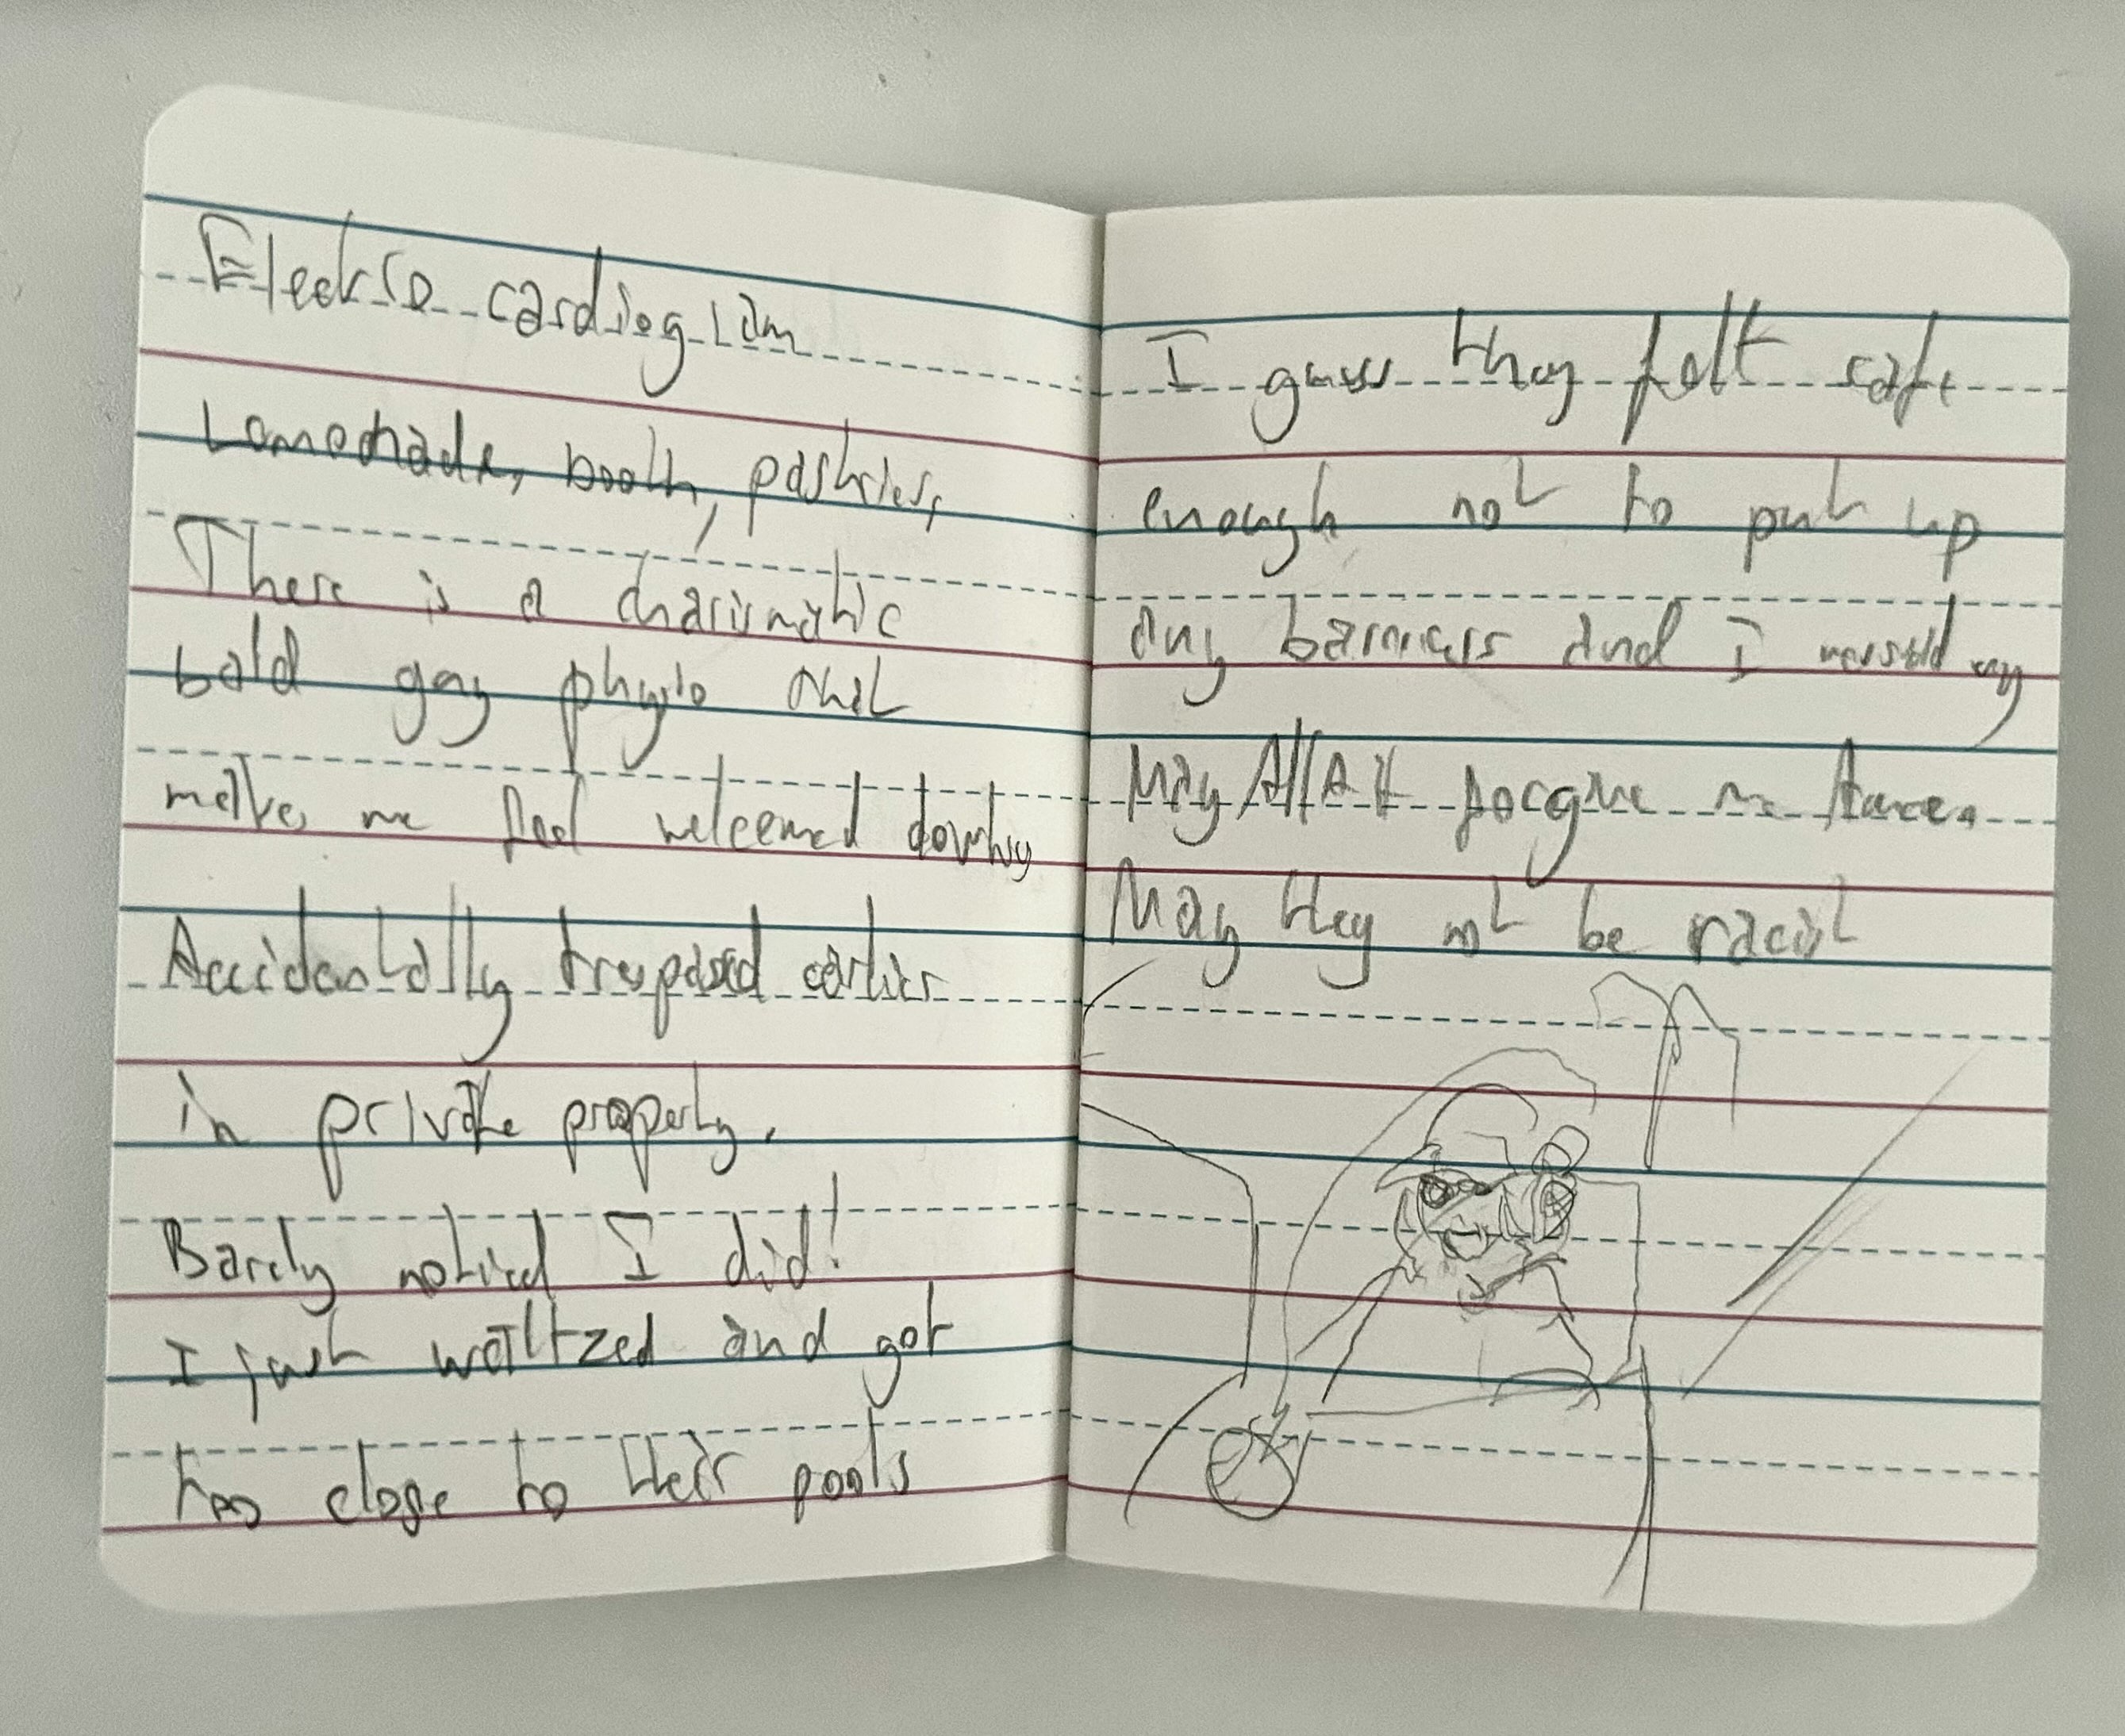 Elektro cardiogram
Lemonade, booth, pastries,
There is a charismatic
bald gay physio that
makes me feel welcomed
Accidentally trespassed earlier
in private property.
Barely noticed I did!
I just waltzed and got
too close to their pools
I guess they felt safe
enough not to put up
any barriers and I
May Allah forgive me
May they not be racist